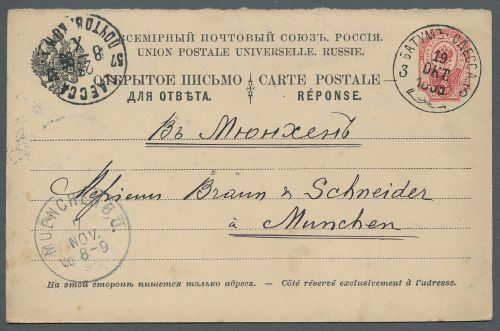 ВСЕМІРНЫЙ ПОЧТОВЫЙ СОЮЗЪ. РОССІЯ.
UNION POSTALE UNIVERSELLE. RUSSIE.
ОТКРЫТОЕ ПИСЬМО
CARTE POSTALE
ДЛЯ ОТВѢТА.
RÉPONSE.
ОДЕССА
БАТУМЪ-ОДЕССА
19
ОКТ
3
Въ Мюнхенъ
Messieurs Braun & Schneider
à Munchen
MUENCHEN B.U.
NOV.
8-9
На этой сторонѣ пишется только адресъ. — Côté réservé exclusivement à l'adresse.